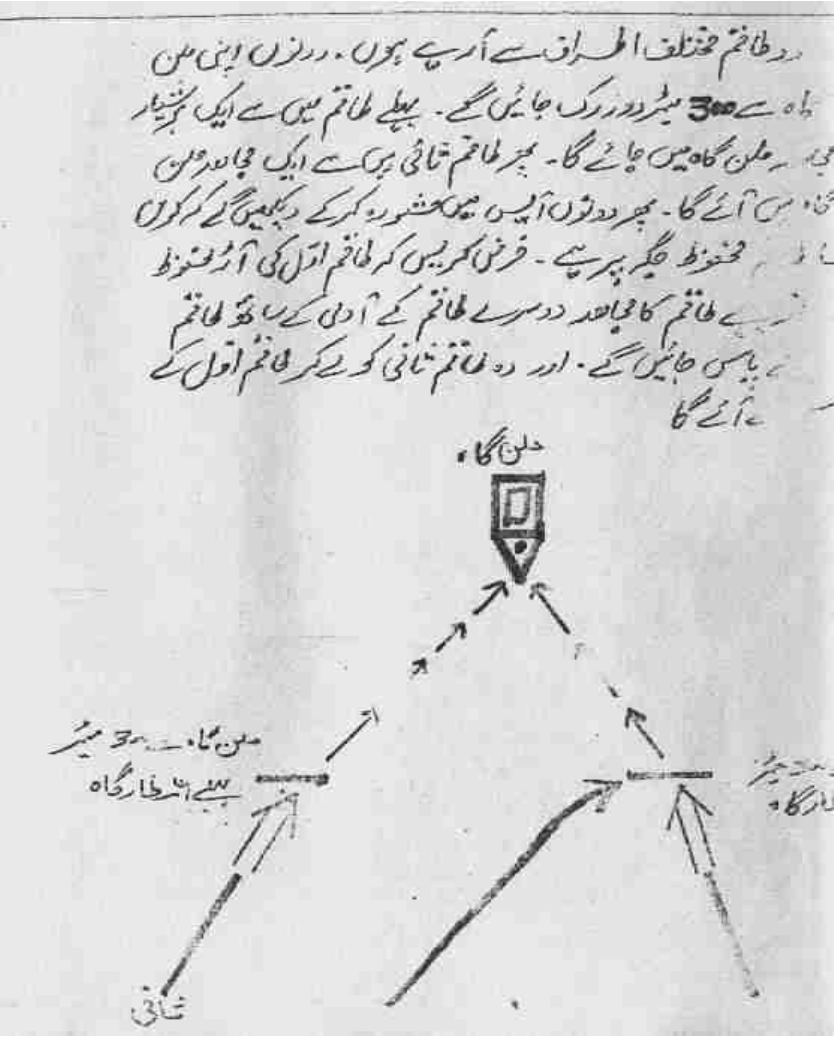 دو طائم مختلف اطراف سے آرہے ہوں. دونوں اپنی ملن
گاہ سے 300 میٹر دور رک جائیں گے۔ پہلے طائم میں سے ایک ہوشیار
ملن گاہ میں جائے گا۔ پھر طائم ثانی میں سے ایک مجاہد ملن
گاہ میں آئے گا۔ پھر دونوں آپس میں مشورہ کرکے دیکھیں گے کہ کون
محفوظ جگہ پر ہے۔ فرض کریں کہ طائم اول کی آڑ محفوظ
طائم کا مجاہد دوسرے طائم کے آدمی کے ساتھ طائم
پاس جائیں گے۔ اور وہ طائم ثانی کو لے کر طائم اول کے
آئے گا
ملن گاہ
ملن گاہ سے 300 میٹر
پہلے انتظارگاہ
میٹر
ثانی